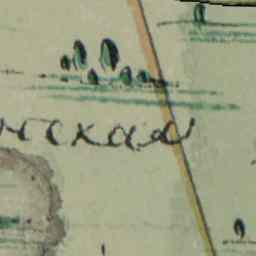 нская